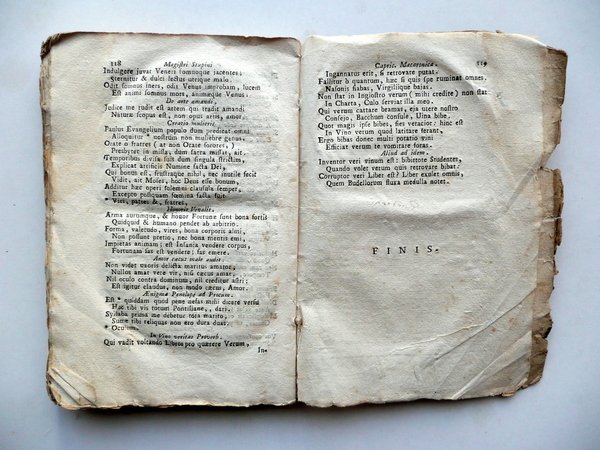 118 Magistri Stopini
Indulgere juvat Veneri somnoque jacentes;
Sternitur & dulci lectus utrique malo.
Odit somnus iners, odit Venus improbam, lucem
Est animi somnus mors, animæque Venus.
De arte amandi.
Judice me rudit est artem qui tradit amandi
Naturæ scopus est, non opus artis, amor.
Creatio mulieris.
Paulus Evangelium populo dum predicat omni
Alloquitur * nostrum non muliebre genus.
Orate o fratres ( at non Orate sorores, )
Presbyter in missa, dum facra mistat, ait.
Temporibus divisa suis dum singula strictim,
Explicat artificis Numine facta Dei,
Vidit, ait Moses, hoc Deus esse bonum,
Qui bonus est, frustraque nihil, nec inutile fecit
Additur hæc operi solemni clausula semper,
Excepto postquam fœmina facta fuit
* Viri, patres &, fratres,
Honores Venales.
Arma aurumque, & honor Fortunæ sunt bona sortis
Quidquid & humano pendet ab arbitrio.
Forma, valetudo, vires, bona corporis almi,
Non possunt pretio, nec bona mentis emi,
Impietas animam; est Insania vendere corpus,
Fortunam fas est vendere; fas emere.
Amor cæcus male audit.
Non videt uxoris delicta maritus amator,
Nullus amat vere vir, nisi cæcus amat,
Nil oculo contra dominum, nil creditur astri;
Est igitur claudus, non modo cæcus, Amor.
Ænigma Penelope ad Procum.
Est * quiddam quod pene uelas mihi dicere versu
Hac tibi vis totum Pontiliane, dari.
Syllaba prima me debetur tota marito,
Sume tibi reliquas non ero dura duas.
* Oculum
In Vino veritas Proverb.
Qui vadit voltando Libros pro quærere Verum,
In-
Capric. Macaronica. 119
Ingannatus erit, si retrovare putat,
Fallitur b quantum, hæc si quis spe ruminat omnes,
Nasonis fiabas, Virgiliique bajas.
Non stat in Ingiostro verum ( mihi credite ) non stat
In Charta, Culo serviat illa meo.
Verum qui cattare beamat, eja utere nostro
Consejo, Bacchum consule, Uina bibe,
Quor magis ipse bibes, fies veracior: hinc est
In Vino verum quod latitare ferant,
Ergo bibas donec multi potatio vini
Efficiat verum te vomitare foras.
Aliud ad idem.
Inventor veri vinum est: bibitote Studentes,
Quando voler verum quis retrovare bibat.
Corruptor veri Liber est? Liber exulet omnis,
Quem Budellorium fluxa medulla notet.
FINIS.